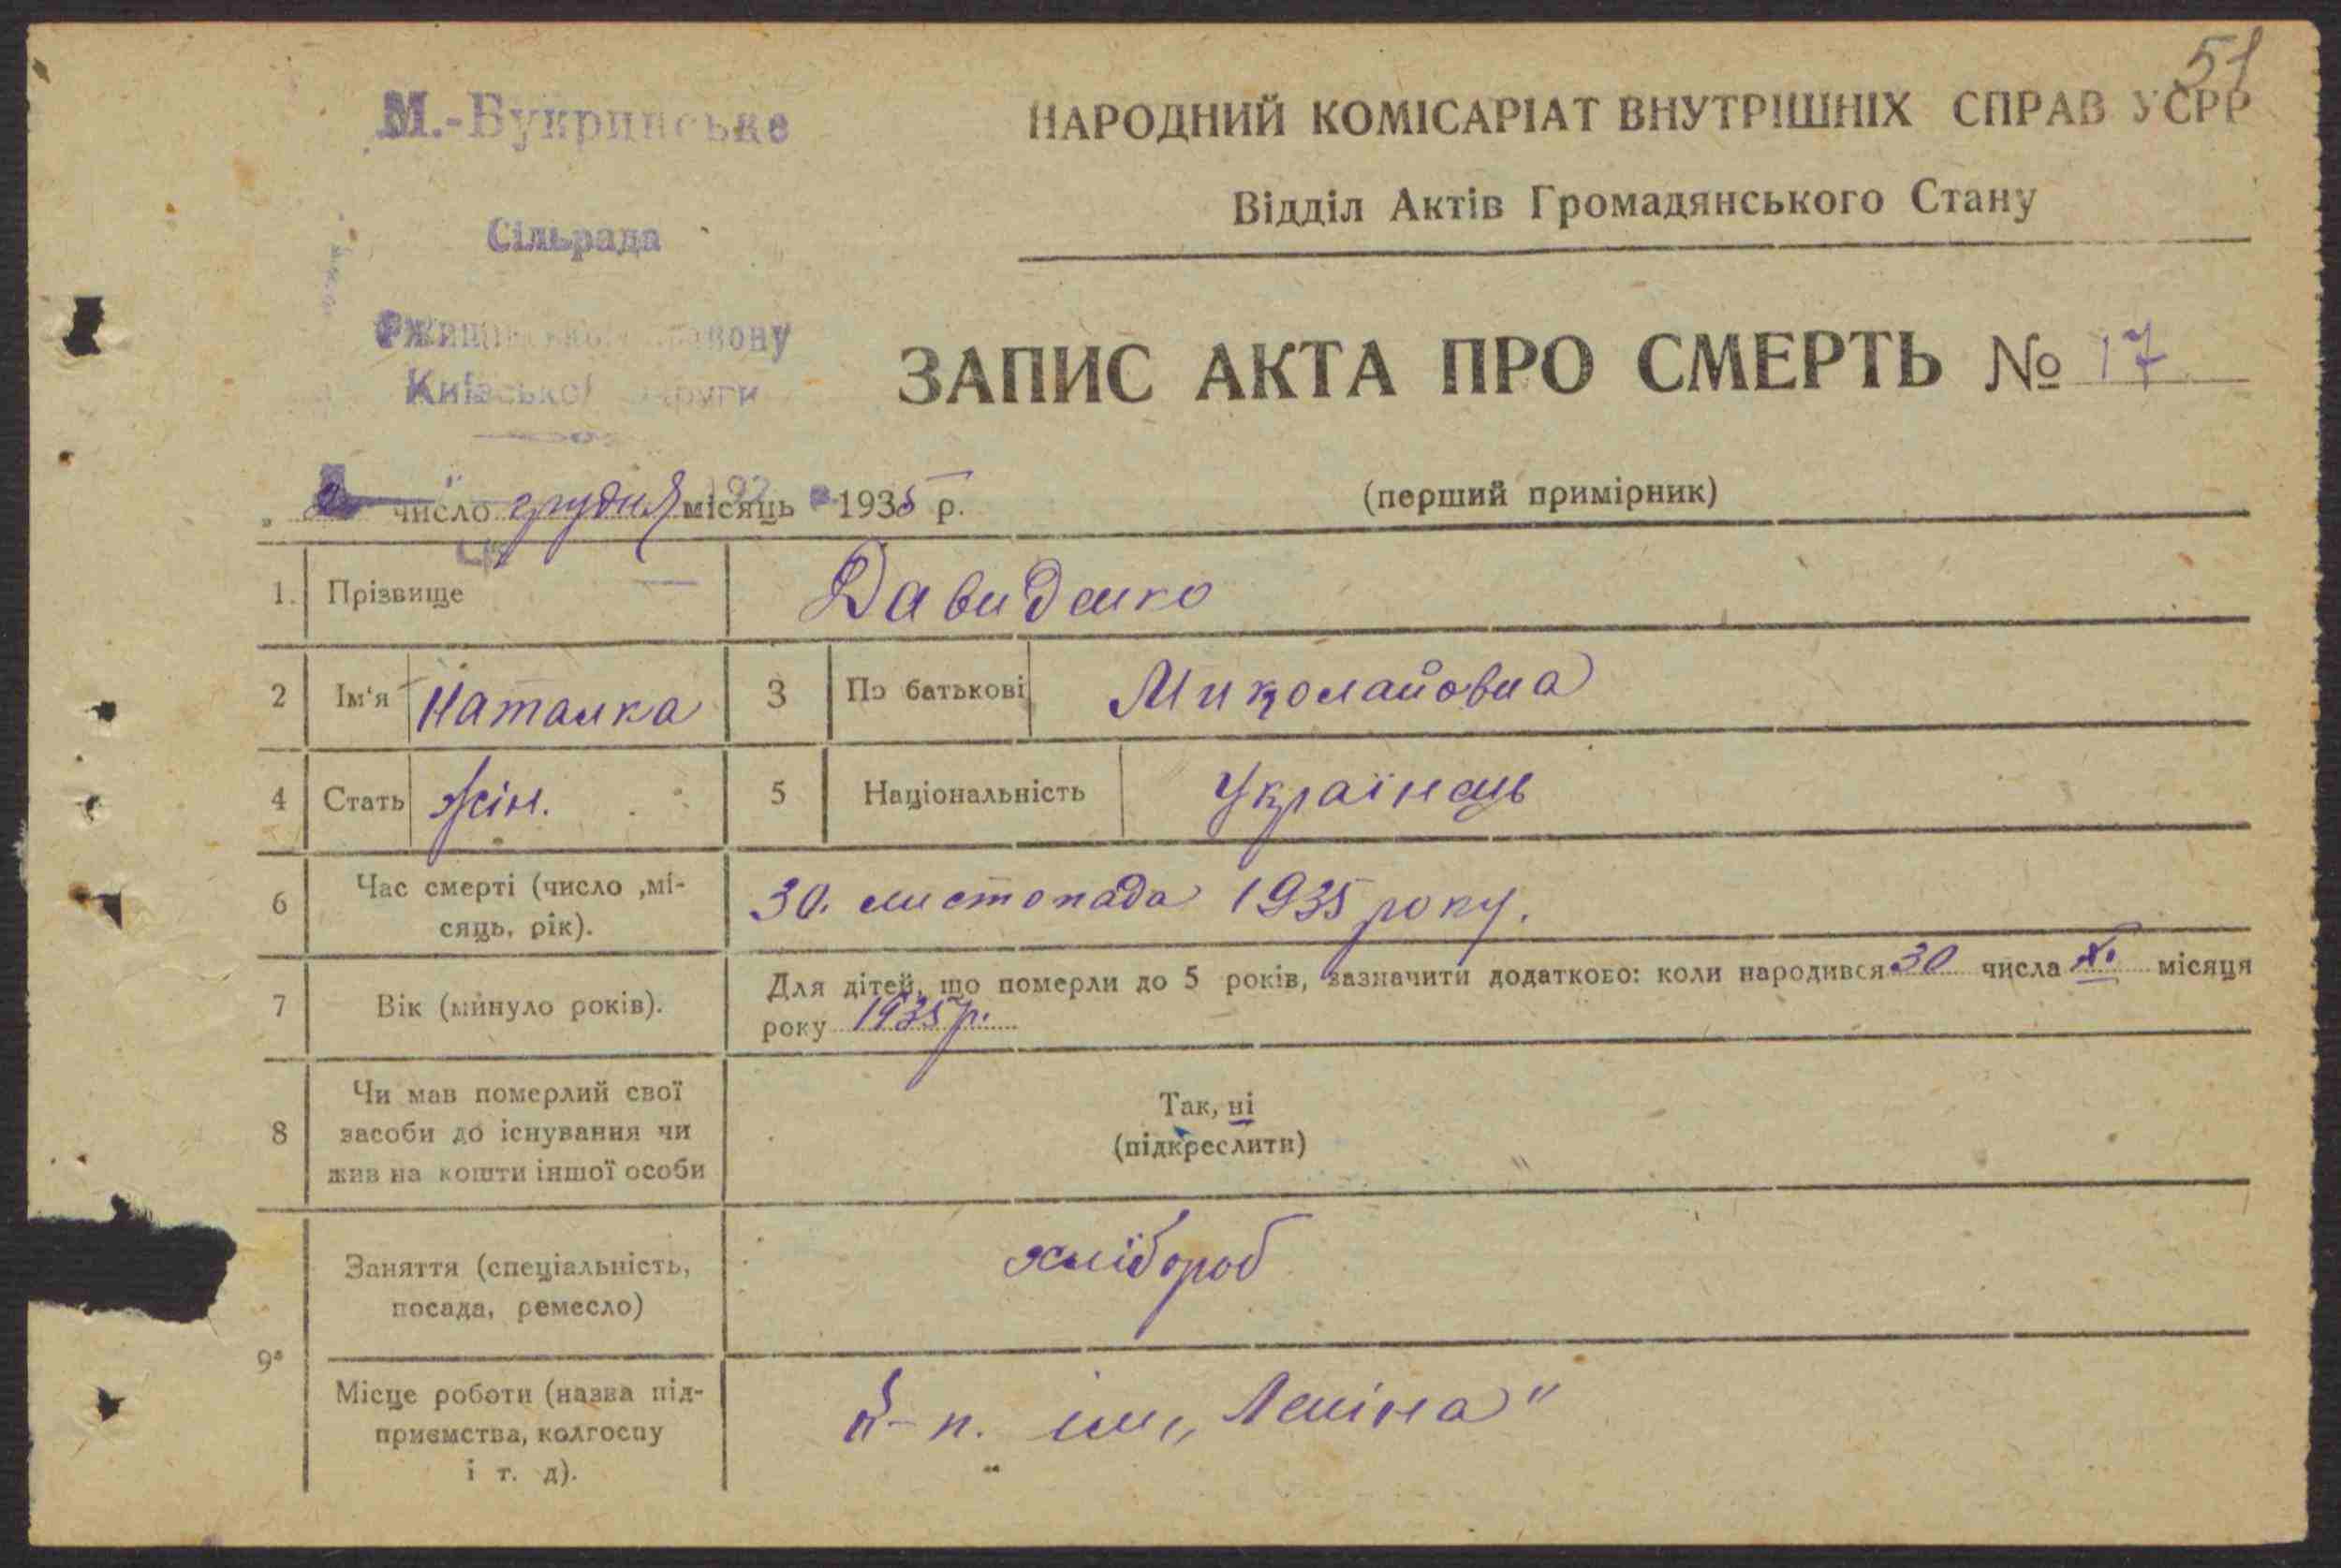 51
М.-Букринське
Сільрада
Київської округи
НАРОДНИЙ КОМІСАРІАТ ВНУТРІШНІХ СПРАВ УСРР
Відділ Актів Громадянського Стану
ЗАПИС АКТА ПРО СМЕРТЬ № 17
(перший примірник)
„ 2 " число грудня місяць 1935 р.
1. Прізвище Давиденко
2 Ім'я Наталка 3 По батькові Миколайовна
4 Стать жін. 5 Національність Українець
6 Час смерті (число ,мі-
сяць, рік). 30. листопада 1935 року.
7 Вік (минуло років). Для дітей, що померли до 5 років, зазначити додатково: коли народився 30 числа XI. місяця
року 1935 р.
8 Чи мав померлий свої
засоби до існування чи
жив на кошти іншої особи
Так, ні
(підкреслити)
9а Заняття (спеціальність,
посада, ремесло) хлібороб
Місце роботи (назва під-
приємства, колгоспу
і т. д).
ім „Леніна"